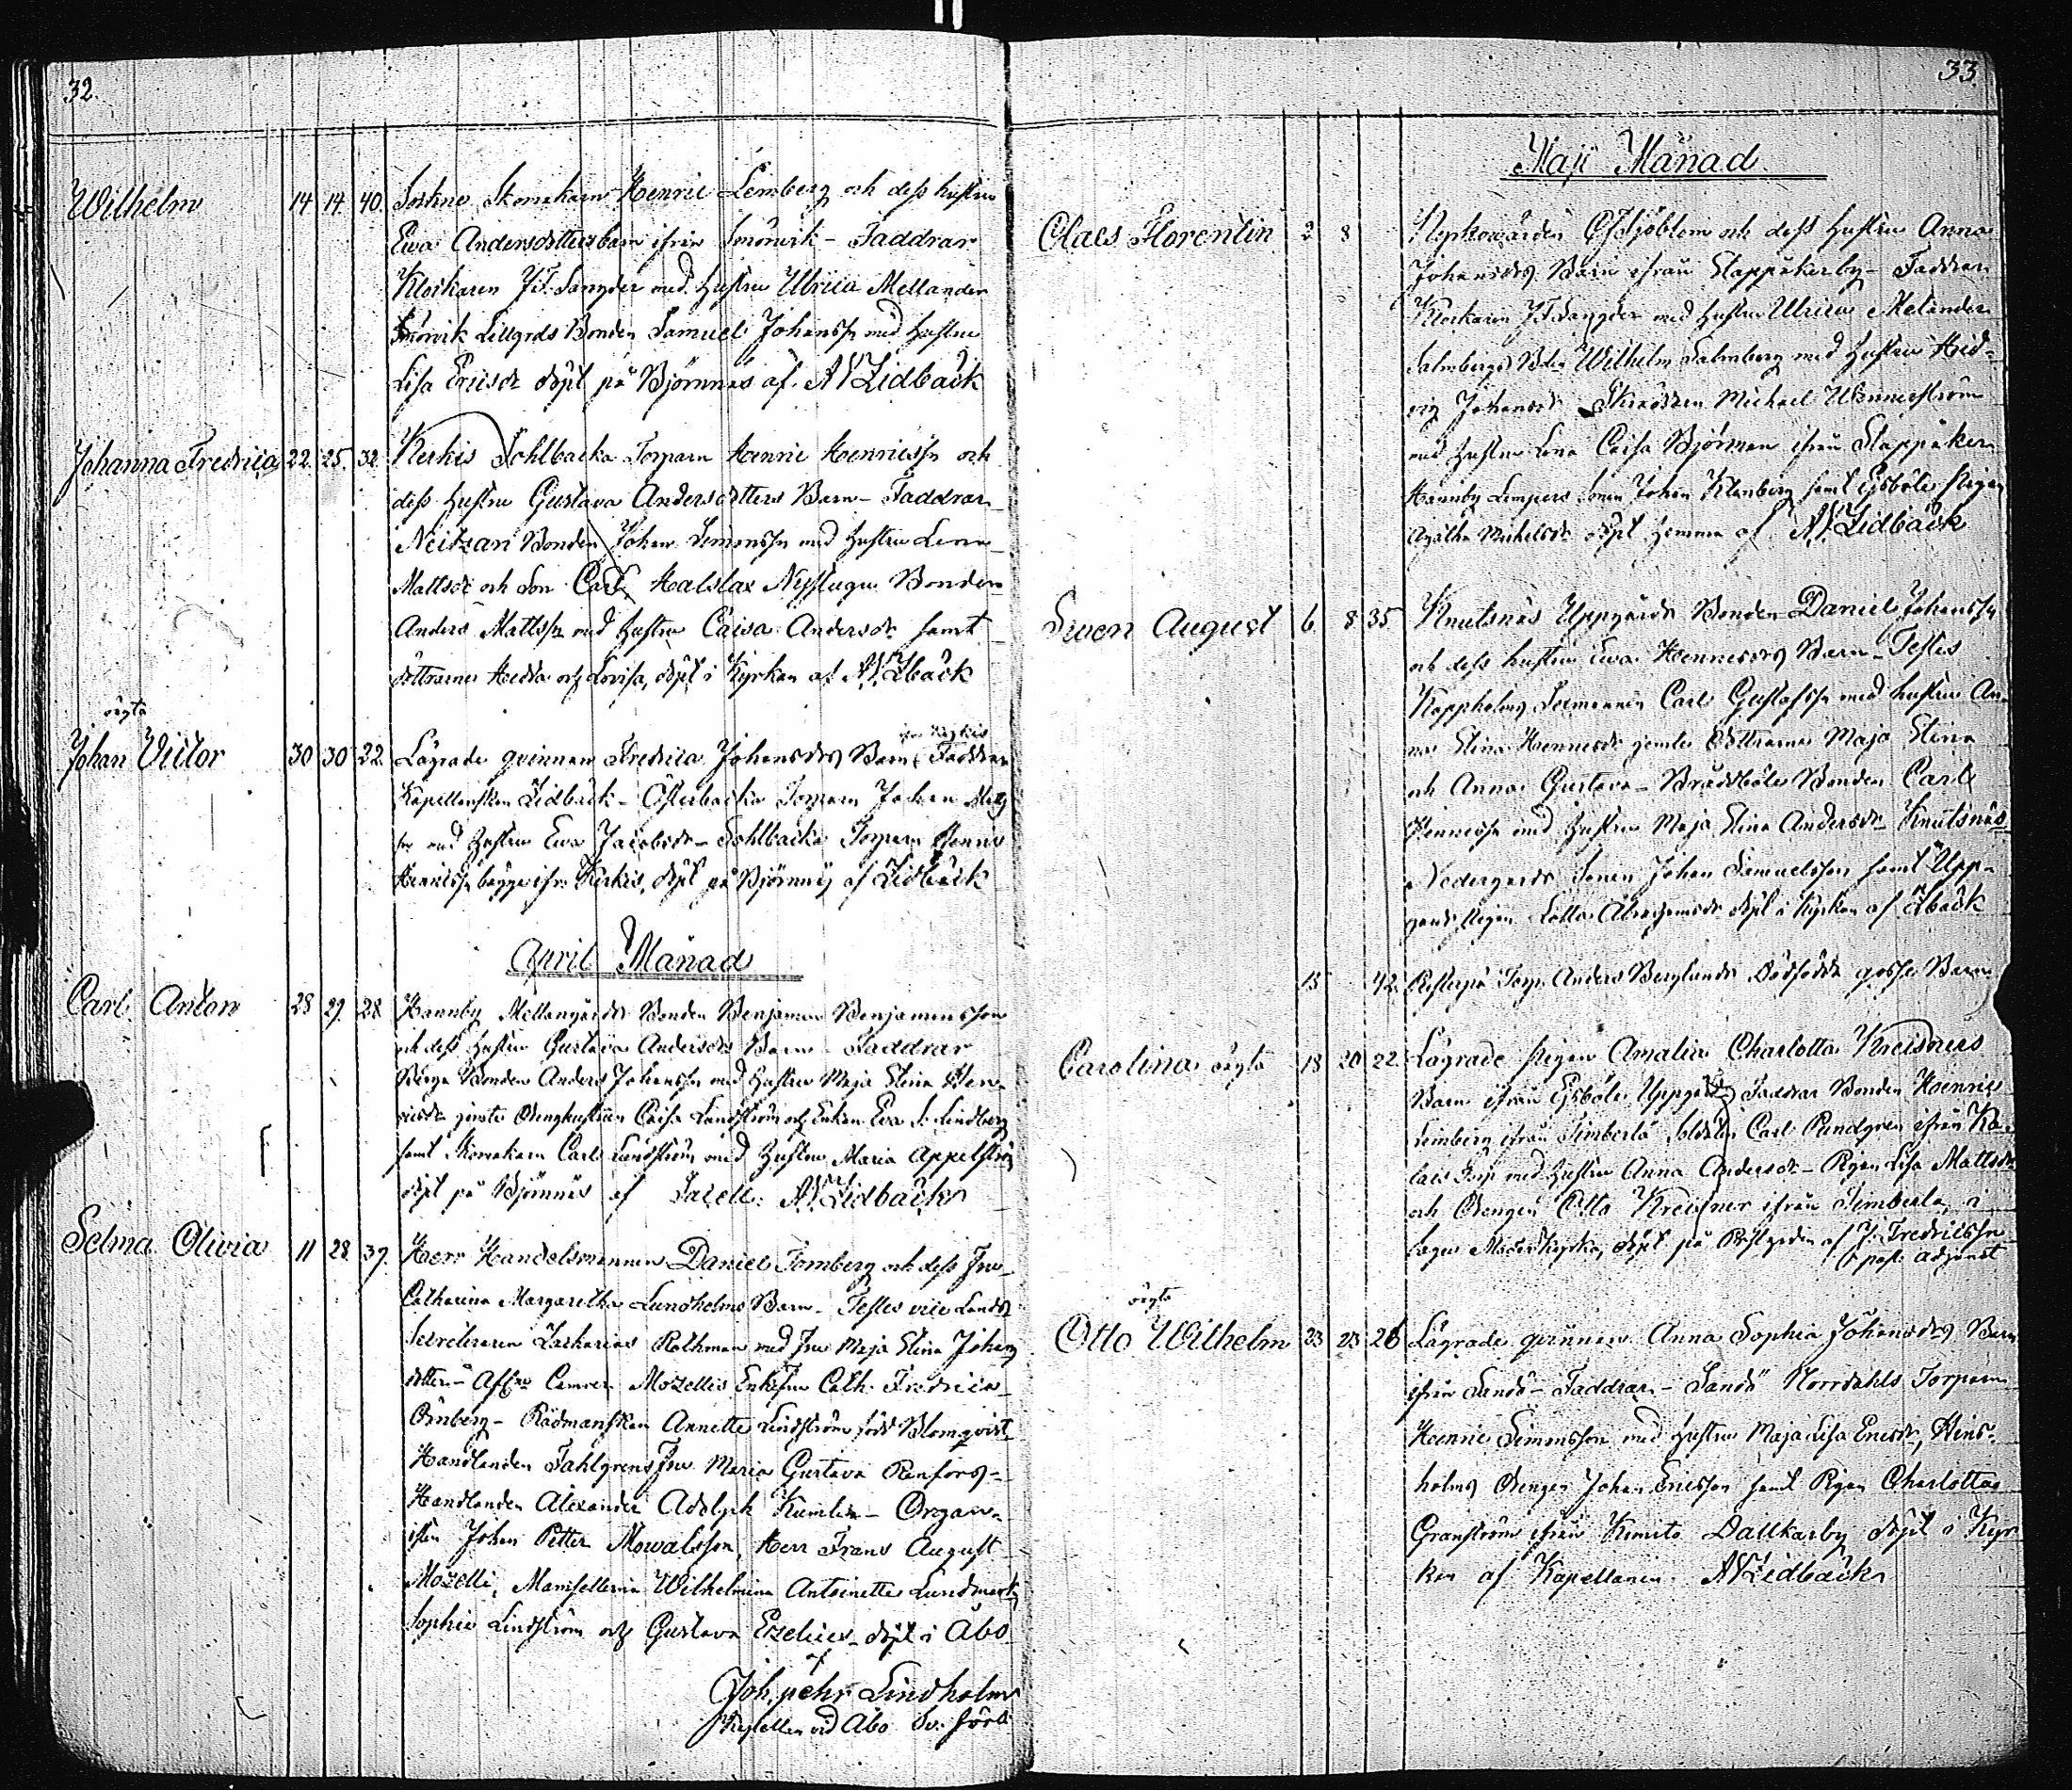 32.
Wilhelm 14 14. 40. Skomakarn Henric Lemberg och dess hustru
Ewa Andersdotters barn ifrån Smörvik - Faddrar
Klockaren J F. Sanyder med hustru Ulrica Mellander
Smörvik Lillgrds Bonden Samuel Johanss. med hustru
Lisa Ericsdr döpt på Björnnäs af. A V Lidbäck
Johanna Fredrica 22. 25. 32. Kerkis Sohlbacka Torparn Henric Henricss. och
dess hustru Gustava Andersdotters Barn - Faddrar
Bonden Johan Simonss. med hustru Lena
Mattsdr och Son Carl, Halslax Nystugu Bonden
Anders Mattss. med hustru Caisa Andersdr samt
döttrarne Hedda och Lovisa, döpt i Kyrkan af A V. Lbäck
oägta
Johan Victor 30 30 22. Lägrade qvinnan Fredrica Johansdrs Barn Faddrar
Kapellanskan Lidbäck - Österbacka Torparn Johan
med hustru Ewa Jacobsdr - Sohlbacka Torparn Henric
Henricss. bägge ifr. Kerkis, döpt på Björnnäs af Lidbäck
April Månad
Carl Anton 28 29. 28 Hannby Mellangårds Bonden Benjamin Benjaminsson
och dess hustru Gustava Andersdrs Barn - Faddrar
Bonden Anders Johanss. med hustru Maja Stina Hen-
ricsdr jemte Drenghustrun Caisa Lundström och Enkan Eva S. Lindberg
samt Skomakarn Carl Lundström med hustru Maria Appelström
döpt på Björnnäs af Sacell: A V. Lidbäck
Selma Olivia 11 28 39. Herr Handelsmannen Daniel Tomberg och dess Fru
Catharina Margaretha Lundholms Barn. Testes vice Lands
Secreteraren Zacharias Rothman med Fru Maja Stina Johans
dotter - Camrer. Mozellis Enkefru Cath. Fredrica
Örnberg - Rådmanskan Annette Lindström född Blomqvist
Handlanden Fahlgrens Fru Maria Gustava Renfors -
Handlanden Alexander Adolph Kumlin - Organ-
isten Johan Petter Mowalsson, Herr Frans August
Mozelli, Mamsellerna Wilhelmina Antoinette Lundmark,
Sophia Lindström och Gustava Ezelius - döpt i Åbo
af
Joh. pehr Lindholm
Kapellan vid Åbo Sv. förs.
33
Maji Månad
Claes Florentin 2 8 Kyrkovärden Sjöblom och dess hustru Anna
Johansdrs Barn ifrån Slappåkerby - Faddrar
Klockaren J F Sanyder med hustru Ulrica Melander
Salmbergs Wilhelm Salmberg med hustru Hed-
vig Johansdr Skräddren Michael Wennerström
med hustru Lena Caisa Björman ifrån Slappåker
Hannby Sonen Johan Klenberg samt Gräsböle Pigan
Agatha Michelsdr döpt hemma af A V. Lidbäck
Swen August 6 8 35 Knutsnäs Uppgårds Bonden Daniel Johanss.
och dess hustru Ewa Henricsdrs Barn - Testes
Kappholms Carl Gustafss. med hustru An-
na Stina Henricsdr jemte Döttrarne Maja Stina
och Anna Gustava - Brådsböle Bonden Carl
Henricss. med hustru Maja Stina Andersdr - Knutsnäs
Nedergårds Sonen Johan Samuelsson samt Upp-
gårds Pigan Lotta Abrahamsdr döpt i Kyrkan af Lbäck
15 42. Torp. Anders Berglunds Dödfödda gosse Barn
Carolina oägta 18 20 22. Lägrade Pigan Amalia Charlotta Kreidners
Barn ifrån Uppgård Faddrar Bonden Henric
Simberg ifrån Simberlä Soldaten Carl Rundgren ifrån Ka-
med hustru Anna Andersdr - Pigan Lisa Mattsdr
och Drengen Otto Kreisner ifrån Simberla i
Moderkyrka, döpt på Prestgården af J. Fredricsson
adjunct
oägta
Otto Wilhelm 23 23 26 Lägrade qvinnan Anna Sophia Johansdrs Barn
ifrån Sandö - Faddrar - Sandö Norrdahls Torparn
Henric Simonsson med hustru Maja Lisa Ericsdr,
holms Drengen Johan Ericsson samt Pigan Charlotta
Granström ifrån Kimito Dallkarby döpt i Kyr
kan af Kapellanen. A V Lidbäck